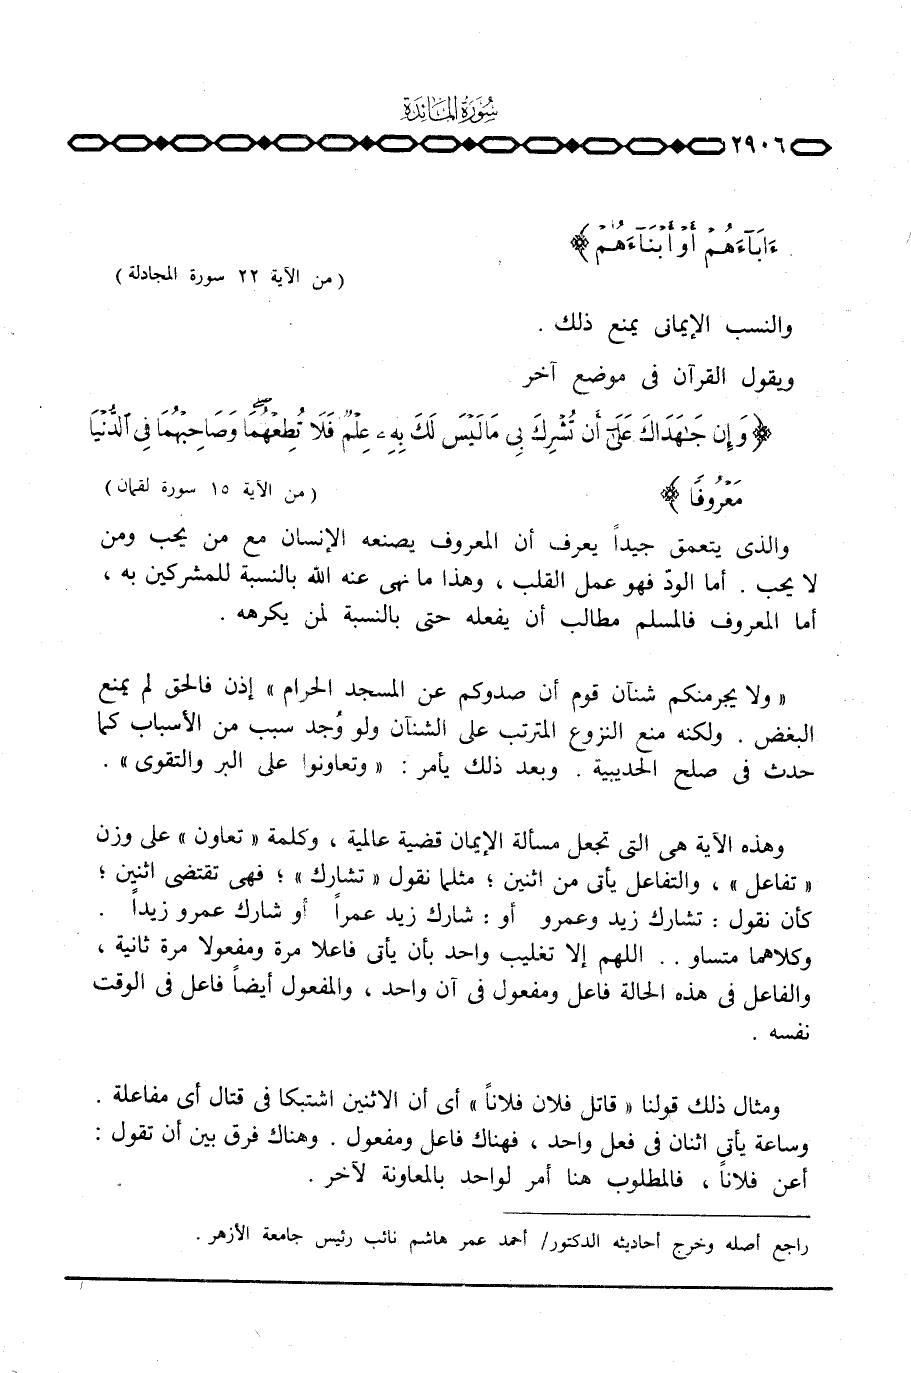 سُورَةُ المَائِدَة
٢٩٠٦
ءَابَآءَهُمْ أَوْ أَبْنَآءَهُمْ ﴾
( من الآية ٢٢ سورة المجادلة )
والنسب الإيمانى يمنع ذلك .
ويقول القرآن فى موضع آخر
﴿ وَإِن جَٰهَدَاكَ عَلَىٰٓ أَن تُشْرِكَ بِى مَا لَيْسَ لَكَ بِهِۦ عِلْمٌ فَلَا تُطِعْهُمَا ۖ وَصَاحِبْهُمَا فِى ٱلدُّنْيَا
مَعْرُوفًا ﴾
( من الآية ١٥ سورة لقمان )
والذى يتعمق جيداً يعرف أن المعروف يصنعه الإنسان مع من يحب ومن
لا يحب . أما الودّ فهو عمل القلب ، وهذا ما نهى عنه الله بالنسبة للمشركين به ،
أما المعروف فالمسلم مطالب أن يفعله حتى بالنسبة لمن يكرهه .
« ولا يجرمنكم شنآن قوم أن صدوكم عن المسجد الحرام » إذن فالحق لم يمنع
البغض . ولكنه منع النزوع المترتب على الشنآن ولو وُجد سبب من الأسباب كما
حدث فى صلح الحديبية . وبعد ذلك يأمر : « وتعاونوا على البر والتقوى » .
وهذه الآية هى التى تجعل مسألة الإيمان قضية عالمية ، وكلمة « تعاون » على وزن
« تفاعل » ، والتفاعل يأتى من اثنين ؛ مثلما نقول « تشارك » ؛ فهى تقتضى اثنين ؛
كأن نقول : تشارك زيد وعمرو أو : شارك زيد عمراً أو شارك عمرو زيداً .
وكلاهما متساو .. اللهم إلا تغليب واحد بأن يأتى فاعلا مرة ومفعولا مرة ثانية ،
والفاعل فى هذه الحالة فاعل ومفعول فى آن واحد ، والمفعول أيضاً فاعل فى الوقت
نفسه .
ومثال ذلك قولنا « قاتل فلان فلاناً » أى أن الاثنين اشتبكا فى قتال أى مفاعلة .
وساعة يأتى اثنان فى فعل واحد ، فهناك فاعل ومفعول . وهناك فرق بين أن تقول :
أعن فلاناً ، فالمطلوب هنا أمر لواحد بالمعاونة لآخر .
راجع أصله وخرج أحاديثه الدكتور/ أحمد عمر هاشم نائب رئيس جامعة الأزهر .